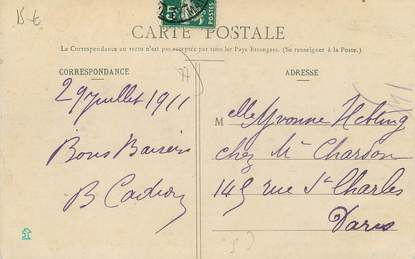 15 €
5
CARTE POSTALE
La Correspondance au recto n'est pas acceptée par tous les Pays Étrangers. (Se renseigner à la Poste.)
CORRESPONDANCE
ADRESSE
29 Juillet 1911
Bons Baisers
B
Melle Yvonne
chez Mr Chardon
145 rue St Charles
Paris